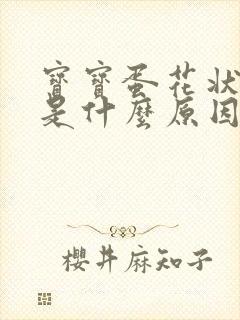 寶寶蛋花狀
是什麼原因
櫻井麻知子